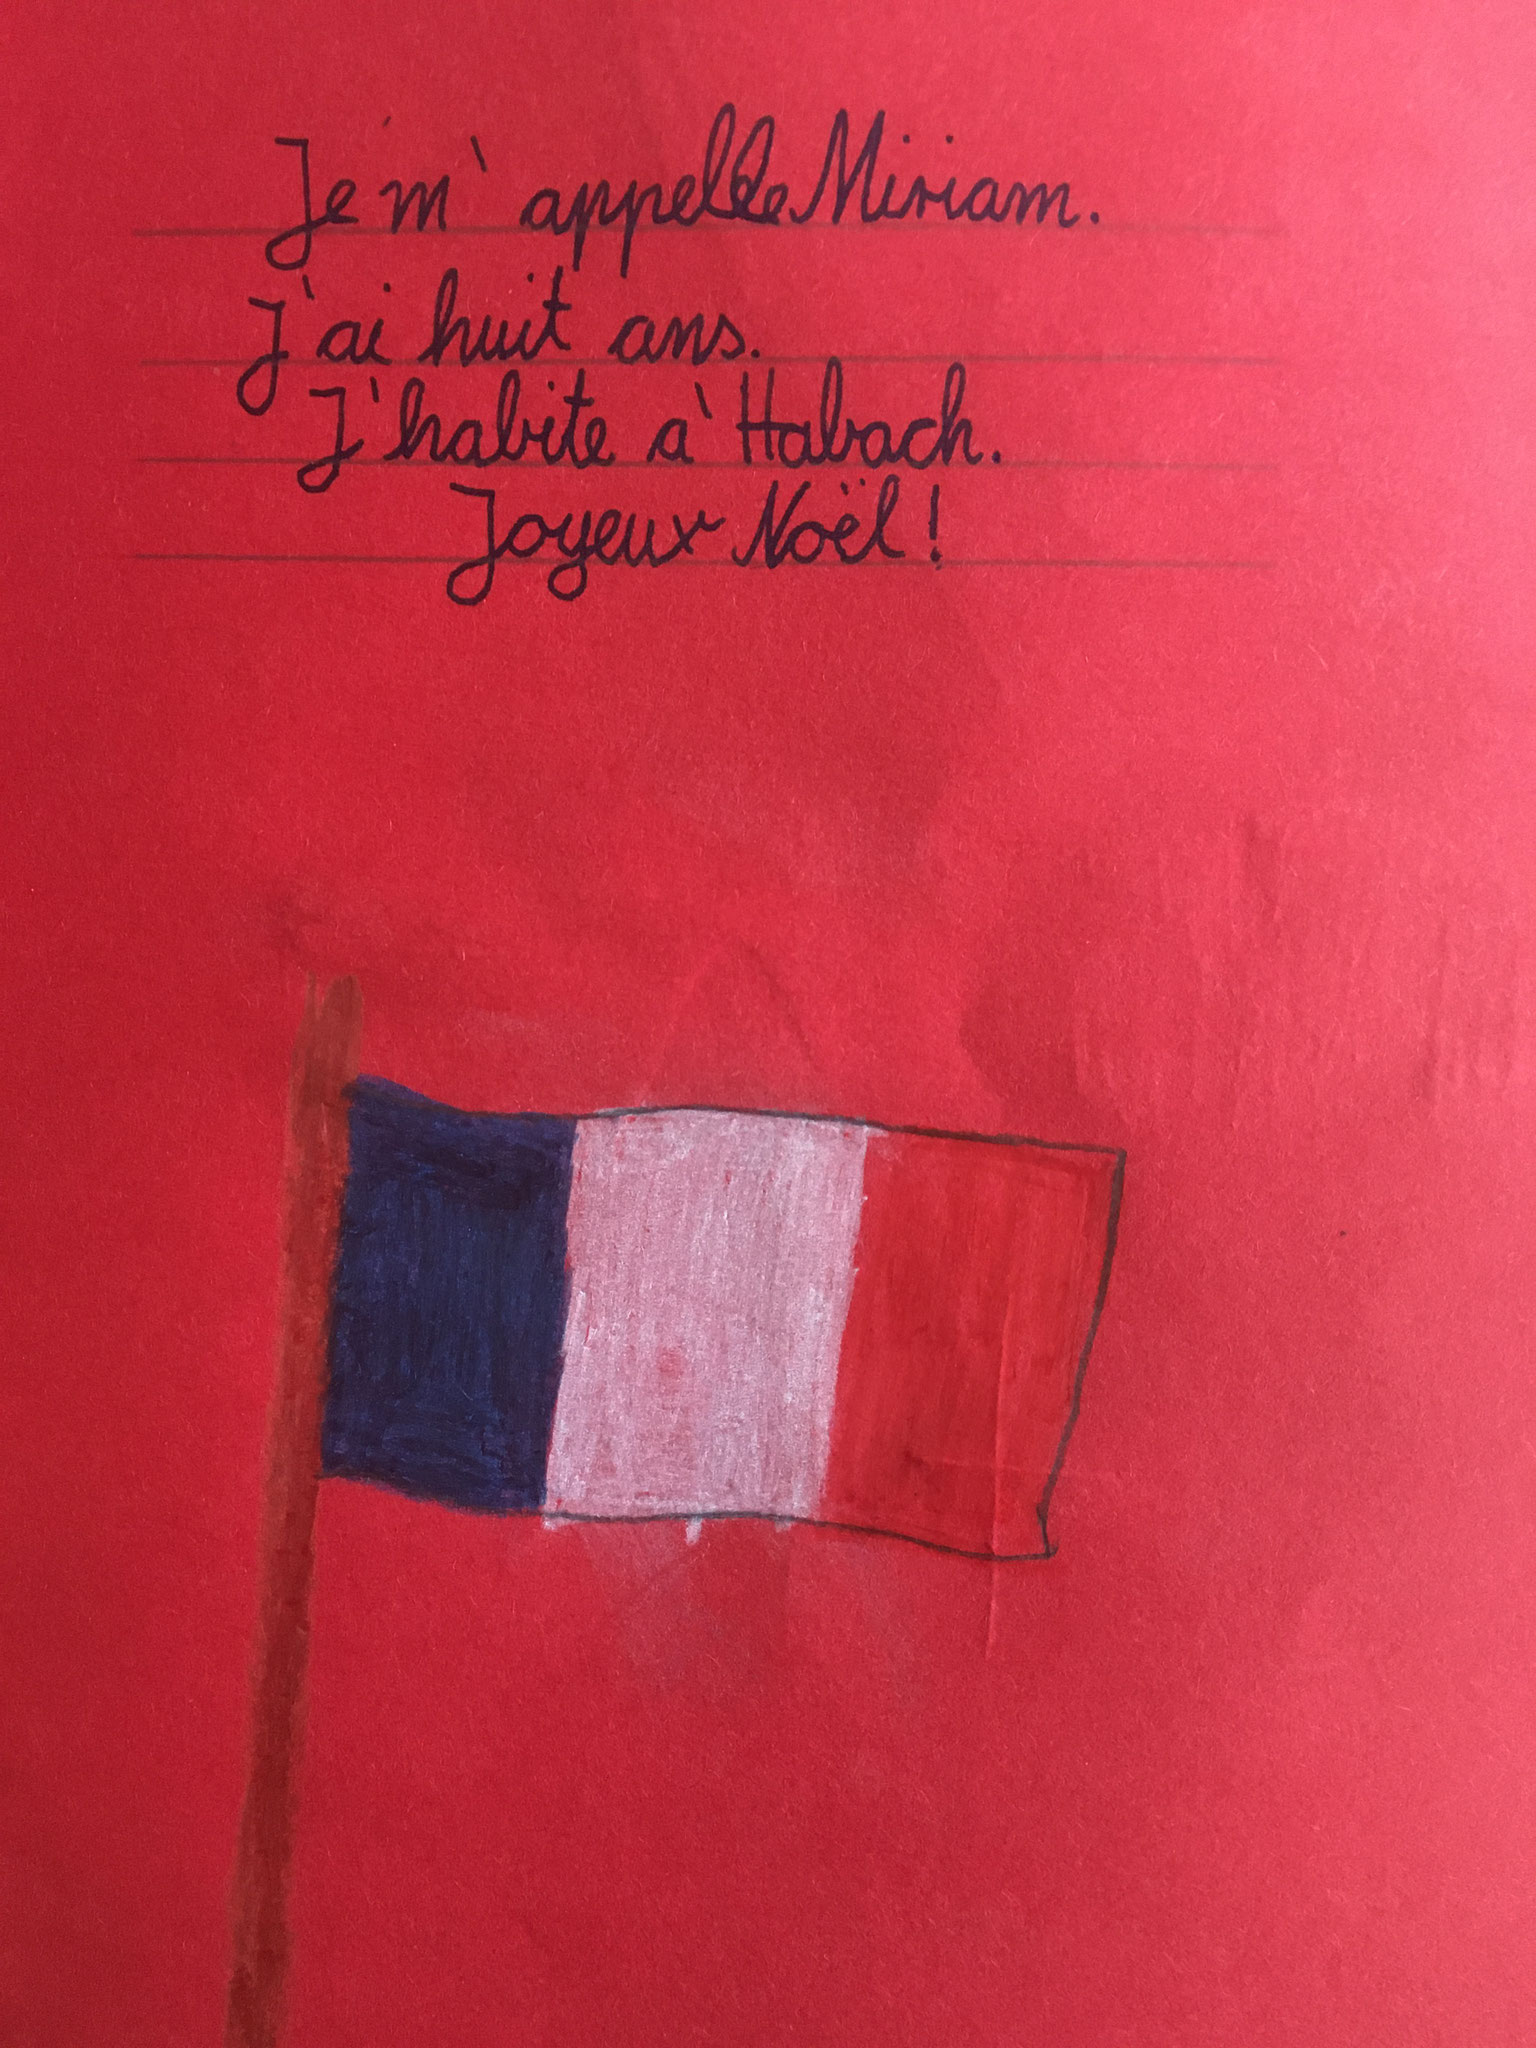 Je m'appelle Miriam.
J'ai huit ans.
J'habite à Habach.
Joyeux Noël!